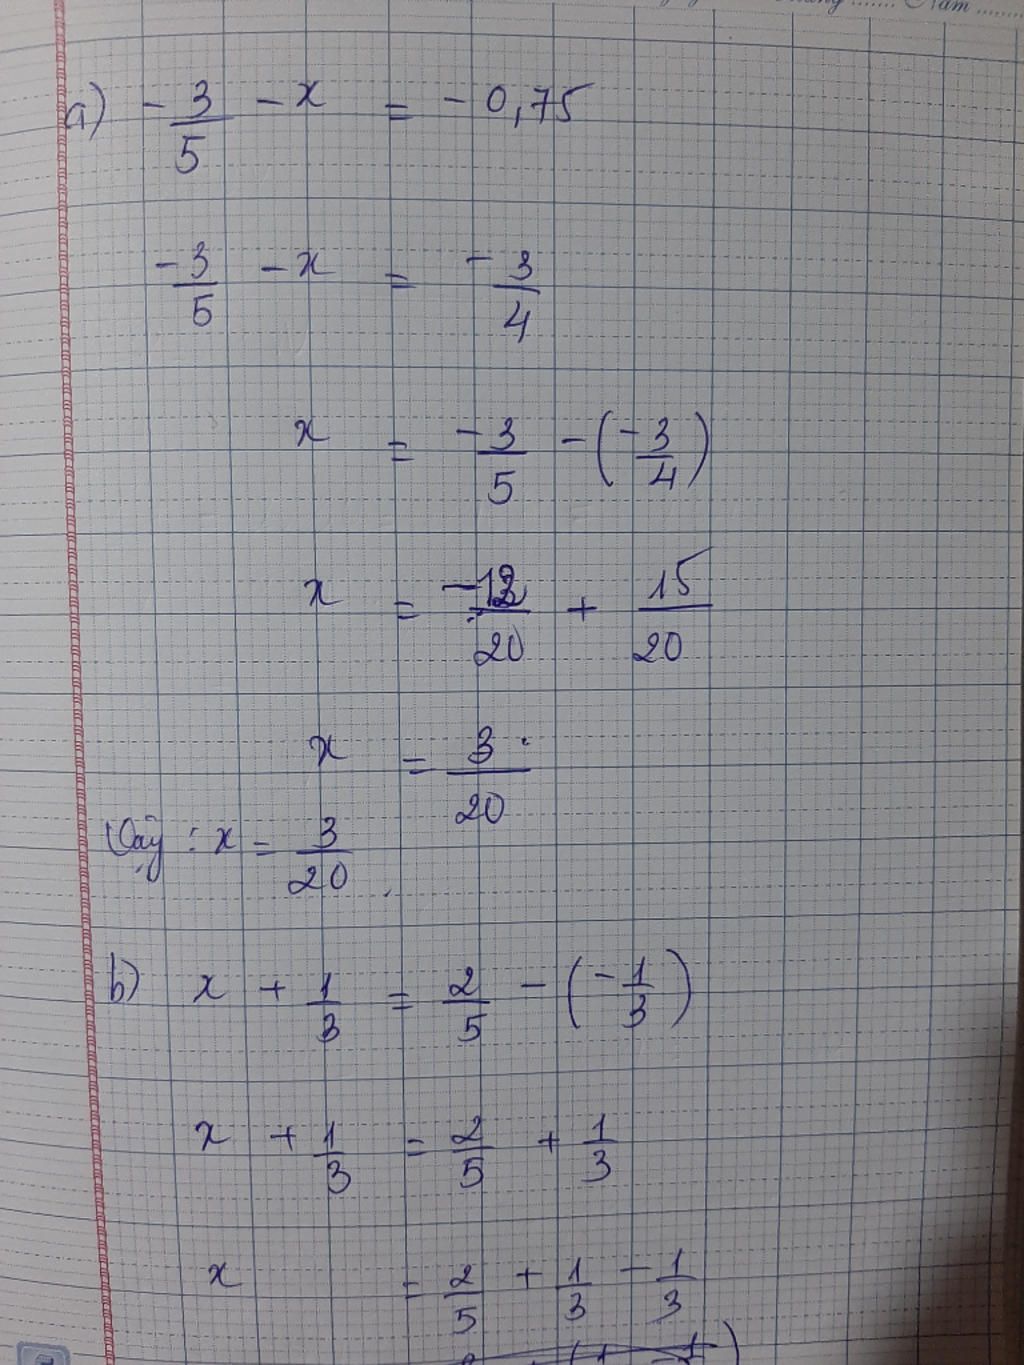 Năm ........
a) -3/5 - x = -0,75
-3/5 - x = -3/4
x = -3/5 - (-3/4)
x = -12/20 + 15/20
x = 3/20
Vậy : x = 3/20.
b) x + 1/3 = 2/5 - (-1/3)
x + 1/3 = 2/5 + 1/3
x = 2/5 + 1/3 - 1/3